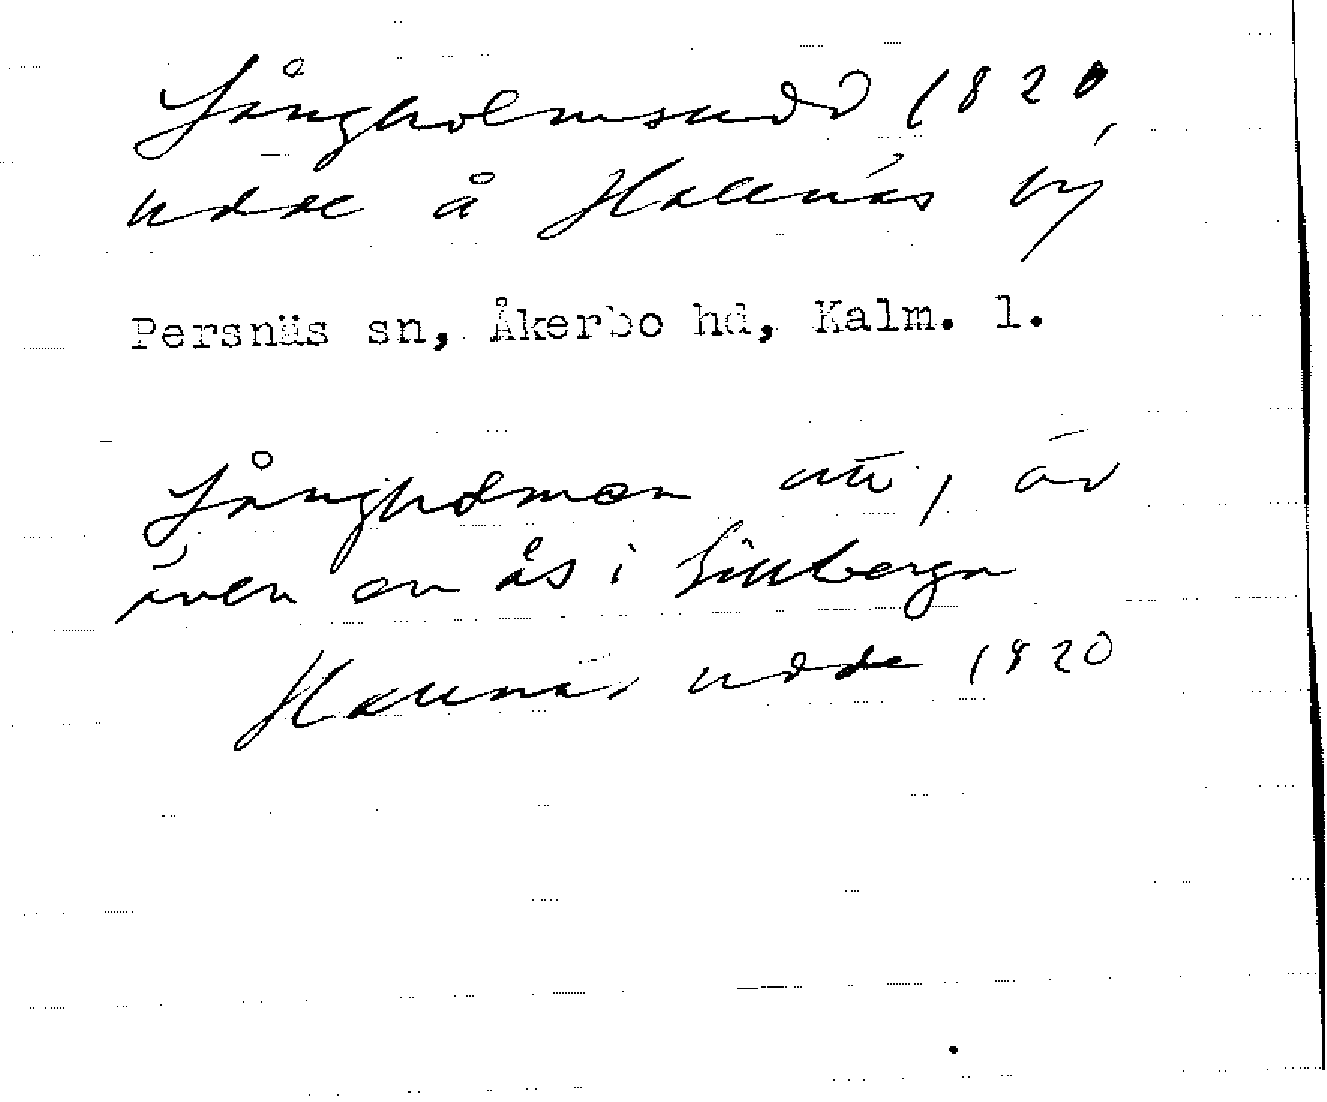 Långholmsudd 1820,
udde å Hallnäs by
Persnäs sn, Åkerbo hd, Kalm. l.
Långholmen är
även en ås i
Hallnäs udde 1820